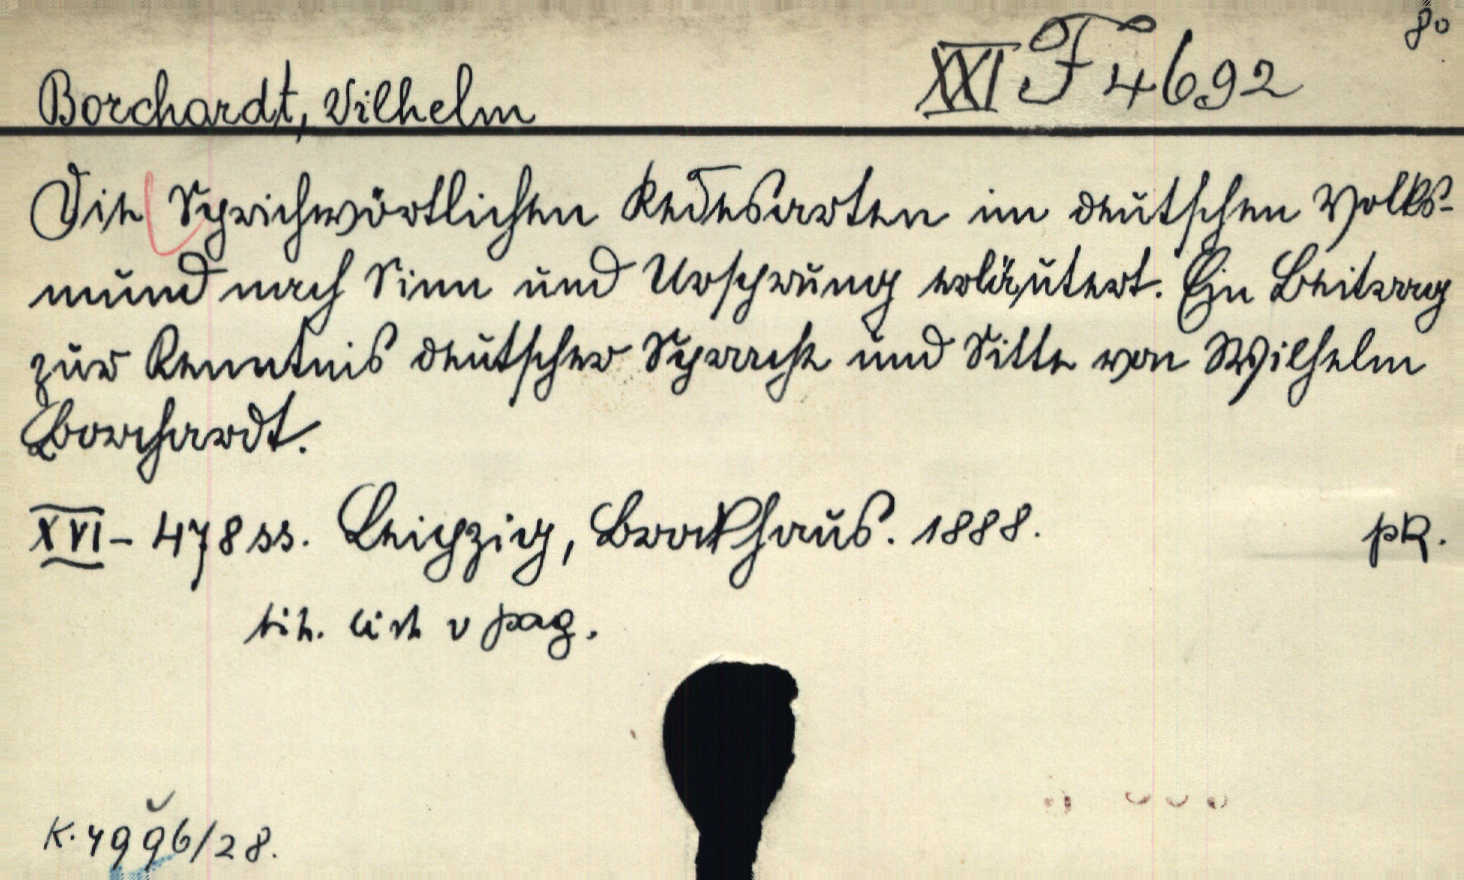 8°
Borchardt, Wilhelm XXI F 4692
Die Sprichwörtlichen Redensarten im deutschen Volks-
mund nach Sinn und Ursprung erläutert. Ein Beitrag
zur Kenntnis deutscher Sprache und Sitte von Wilhelm
Borchardt.
XVI - 478 ss. Leipzig, Brockhaus. 1888. pR.
tit. v pag.
K. 4996/28.